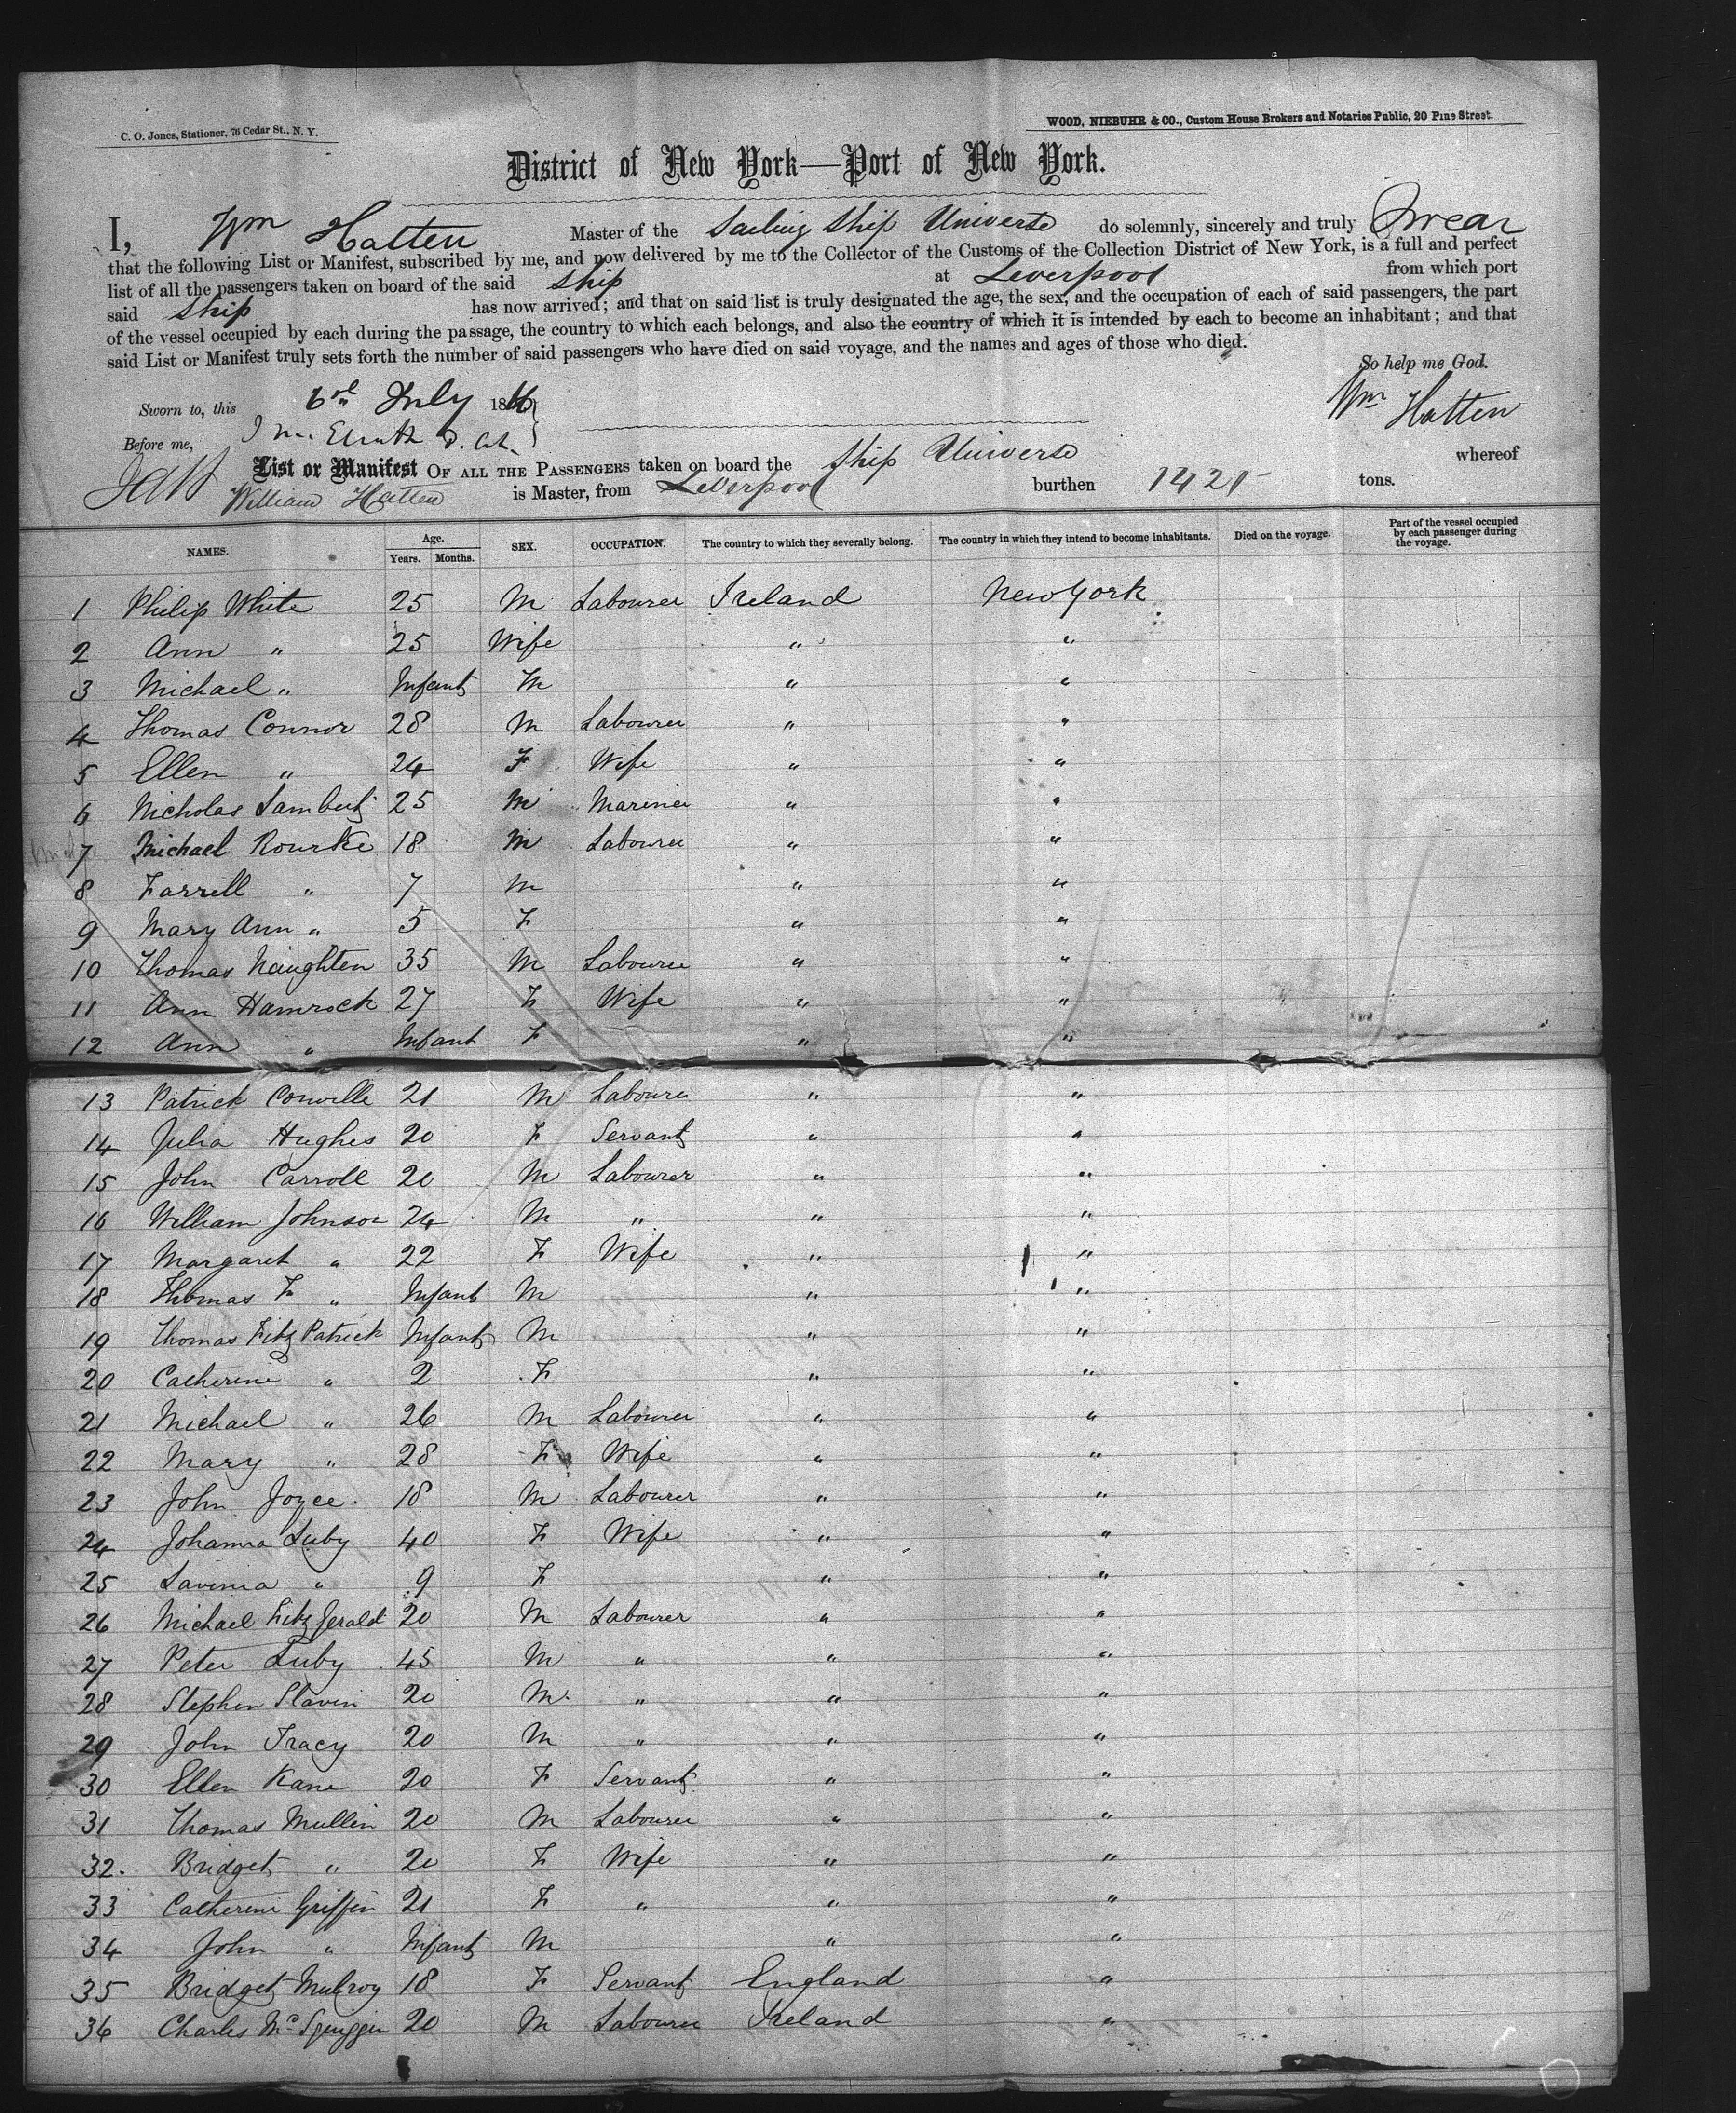 C. O. Jones, Stationer, 76 Cedar St., N. Y.
WOOD, NIEBUHR & CO., Custom House Brokers and Notaries Public, 20 Pine Street.
District of New York—Port of New York.
I, Wm Hatten Master of the Sailing Ship Universe do solemnly, sincerely and truly Swear
that the following List or Manifest, subscribed by me, and now delivered by me to the Collector of the Customs of the Collection District of New York, is a full and perfect
list of all the passengers taken on board of the said Ship at Liverpool from which port
said Ship has now arrived; and that on said list is truly designated the age, the sex, and the occupation of each of said passengers, the part
of the vessel occupied by each during the passage, the country to which each belongs, and also the country of which it is intended by each to become an inhabitant; and that
said List or Manifest truly sets forth the number of said passengers who have died on said voyage, and the names and ages of those who died.
So help me God.
Sworn to, this July 186
Wm Hatten
Before me,
List or Manifest OF ALL THE PASSENGERS taken on board the Ship Universe whereof
William Hatten is Master, from Liverpool burthen tons.
NAMES. Age. Years. Months. SEX. OCCUPATION. The country to which they severally belong. The country in which they intend to become inhabitants. Died on the voyage. Part of the vessel occupied by each passenger during the voyage.
1 Philip White 25 M Labourer Ireland New York
2 Ann " 25 Wife " "
3 Michael " Infant M " "
4 Thomas Connor 28 M Labourer " "
5 Ellen " 24 F Wife " "
6 Nicholas Lambert 25 M Mariner " "
7 Michael Rourke 18 M Labourer " "
8 Farrell " 7 M " "
9 Mary Ann " 5 F " "
10 Thomas Naughten 35 M Labourer " "
11 Ann Hamrock 27 F Wife " "
12 Ann " Infant F " "
13 Patrick Conville 21 M Labourer " "
14 Julia Hughes 20 F Servant " "
15 John Carroll 20 M Labourer " "
16 William Johnson 24 M " " "
17 Margaret " 22 F Wife " "
18 Thomas F " Infant M " "
19 Thomas Fitz Patrick Infant M " "
20 Catherine " 2 F " "
21 Michael " 26 M Labourer " "
22 Mary " 28 F Wife " "
23 John Joyce 18 M Labourer " "
24 Johanna Luby 40 F Wife " "
25 Lavinia " 9 F " "
26 Michael Fitz Jerald 20 M Labourer " "
27 Peter Luby 45 M " " "
28 Stephen Slavin 20 M " " "
29 John Tracy 20 M " " "
30 Ellen Kane 20 F Servant " "
31 Thomas Mullin 20 M Labourer " "
32. Bridget " 20 F Wife " "
33 Catherine Griffin 21 F " " "
34 John " Infant M " "
35 Bridget Mulroy 18 F Servant England "
36 Charles 20 M Labourer Ireland "